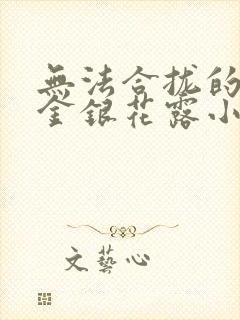 無法合拢的
金銀花露小
文藝心